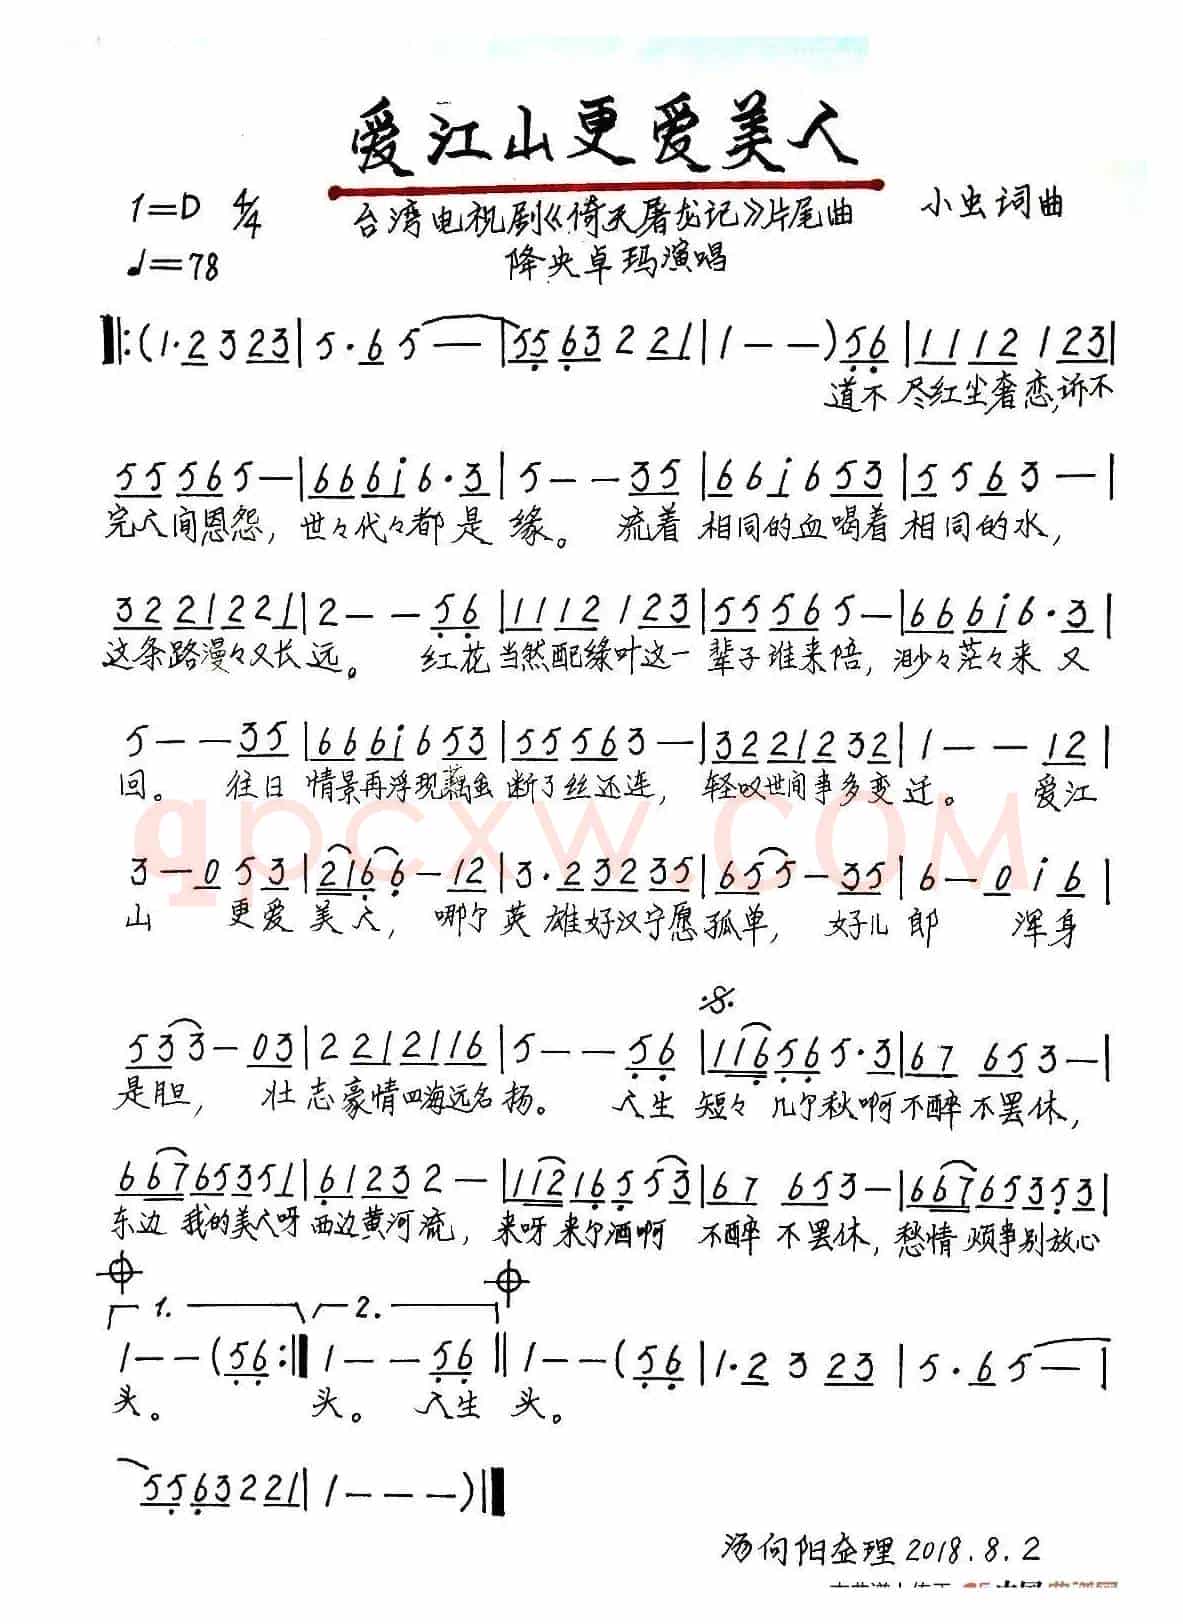 爱江山更爱美人
1=D 4/4 台湾电视剧《倚天屠龙记》片尾曲 小虫词曲
♩=78 降央卓玛演唱
‖:(1·2 3 23|5·6 5 —|55 63 2 21|1 — —)56|11 12 1 23|
道不 尽红尘奢恋,诉不
55 56 5 —|66 6i 6·3|5 — — 35|66 i6 53|55 63 —|
完人间恩怨,世々代々都是缘。 流着 相同的血喝着相同的水,
32 21 22 1|2 — — 56|11 12 1 23|55 56 5 —|66 6i 6·3|
这条路漫々又长远。 红花当然配绿叶这一辈子谁来陪,渺々茫々来又
5 — — 35|66 6i 6 53|55 56 3 —|32 21 2 32|1 — — 12|
回。 往日 情景再浮现藕虽断了丝还连, 轻叹世间事多变迁。 爱江
qpcxw.COM
3 — 0 53|2166 — 12|3·2 32 35|655 — 35|6 — 0 i6|
山 更爱美人, 哪个英雄好汉宁愿孤单, 好儿郎 浑身
533 — 03|2 21 21 16|5 — — 56|116 56 5·3|67 653 —|
是胆, 壮志豪情四海远名扬。 人生 短々几个秋啊不醉不罢休,
667 65 35 1|61 23 2 —|112 16 553|67 653 —|667 65 35 53|
东边我的美人呀西边黄河流, 来呀来个酒啊 不醉不罢休,愁情烦事别放心
1. 2.
1 — — (56:‖1 — — 56‖1 — — (56|1·2 3 23|5·6 5 —|
头。 头。 人生 头。
55 63 2 21|1 — — —)‖
汤向阳整理 2018.8.2